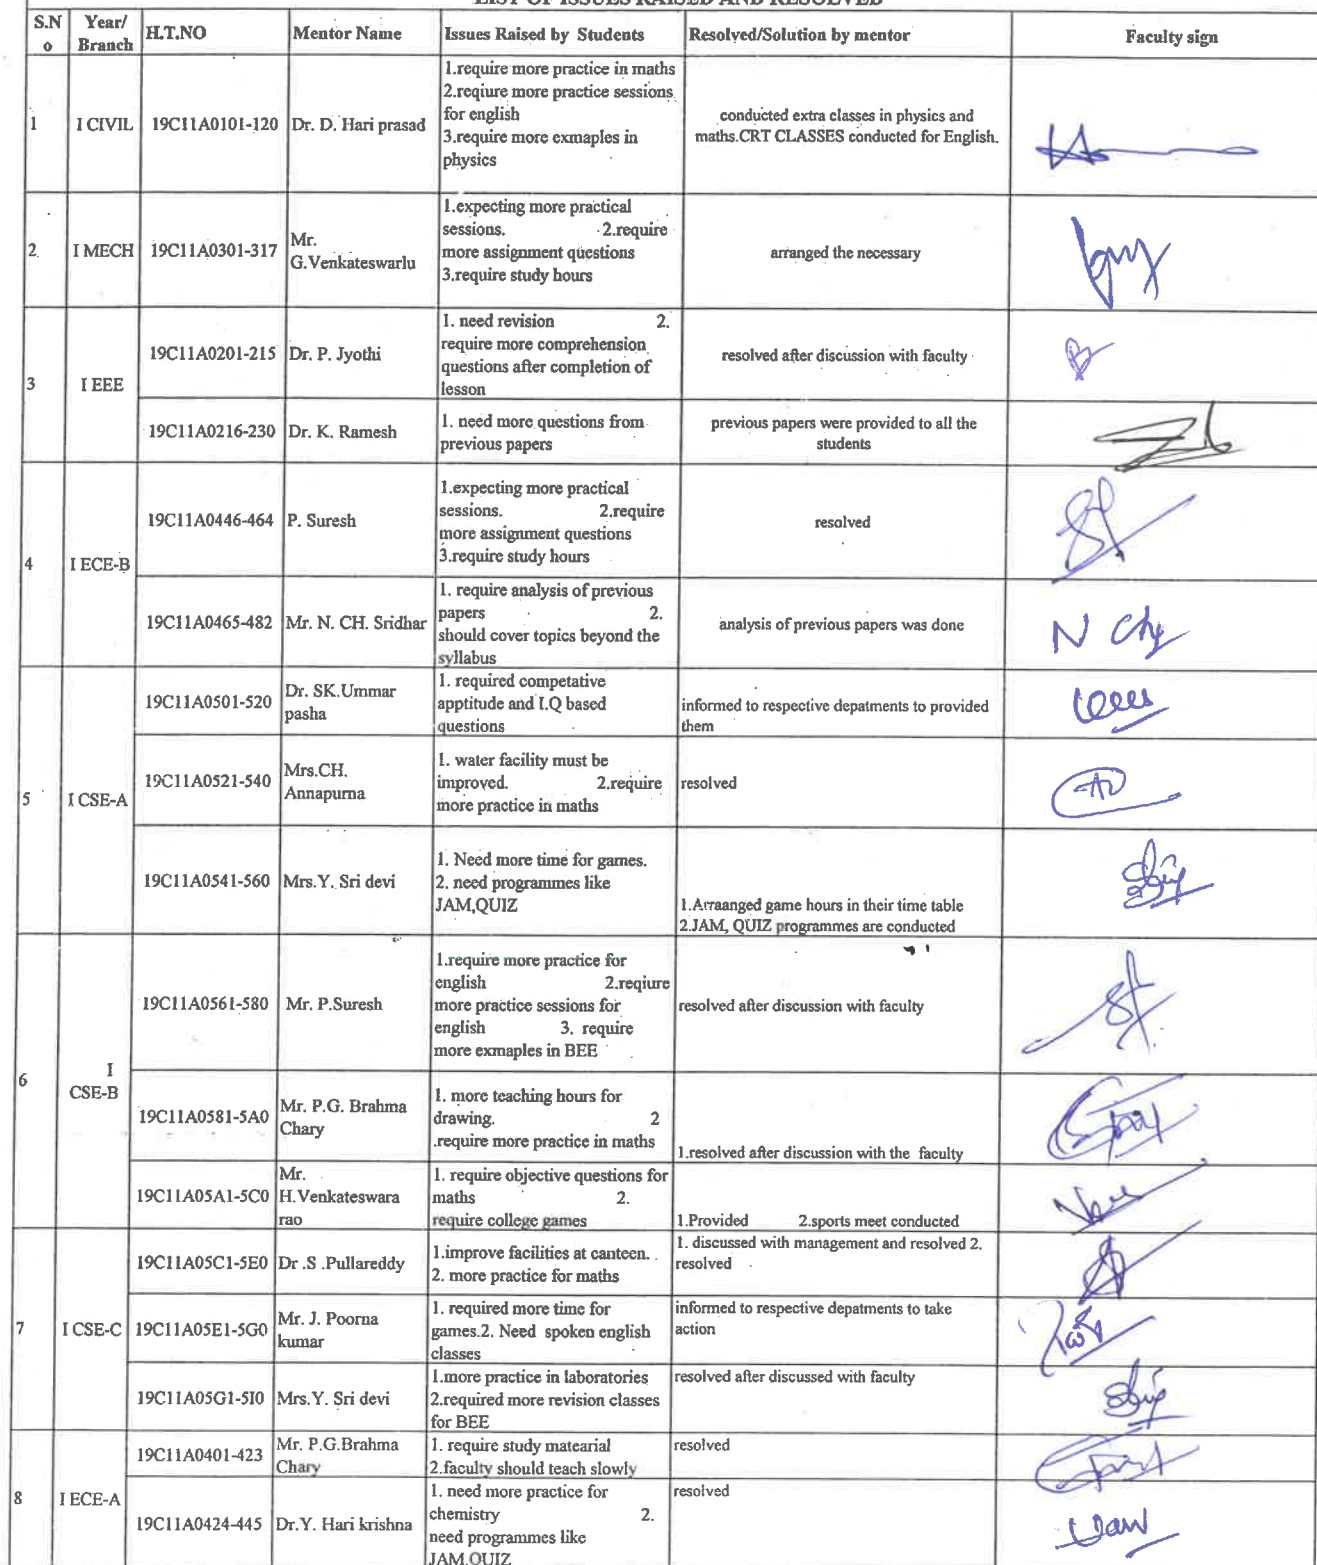 LIST OF ISSUES RAISED AND RESOLVED
S.N
o
Year/
Branch
H.T.NO
Mentor Name
Issues Raised by Students
Resolved/Solution by mentor
Faculty sign
1
I CIVIL
19C11A0101-120
Dr. D. Hari prasad
1.require more practice in maths
2.reqiure more practice sessions
for english
3.require more exmaples in
physics
conducted extra classes in physics and
maths.CRT CLASSES conducted for English.
2.
I MECH
19C11A0301-317
Mr.
G.Venkateswarlu
1.expecting more practical
sessions. 2.require
more assignment questions
3.require study hours
arranged the necessary
3
I EEE
19C11A0201-215
Dr. P. Jyothi
1. need revision 2.
require more comprehension
questions after completion of
lesson
resolved after discussion with faculty
19C11A0216-230
Dr. K. Ramesh
1. need more questions from
previous papers
previous papers were provided to all the
students
4
I ECE-B
19C11A0446-464
P. Suresh
1.expecting more practical
sessions. 2.require
more assignment questions
3.require study hours
resolved
19C11A0465-482
Mr. N. CH. Sridhar
1. require analysis of previous
papers 2.
should cover topics beyond the
syllabus
analysis of previous papers was done
N Chy
5
I CSE-A
19C11A0501-520
Dr. SK.Ummar
pasha
1. required competative
apptitude and I.Q based
questions
informed to respective depatments to provided
them
19C11A0521-540
Mrs.CH.
Annapurna
1. water facility must be
improved. 2.require
more practice in maths
resolved
19C11A0541-560
Mrs.Y. Sri devi
1. Need more time for games.
2. need programmes like
JAM,QUIZ
1.Arraanged game hours in their time table
2.JAM, QUIZ programmes are conducted
6
I
CSE-B
19C11A0561-580
Mr. P.Suresh
1.require more practice for
english 2.reqiure
more practice sessions for
english 3. require
more exmaples in BEE
resolved after discussion with faculty
19C11A0581-5A0
Mr. P.G. Brahma
Chary
1. more teaching hours for
drawing. 2
.require more practice in maths
1.resolved after discussion with the faculty
19C11A05A1-5C0
Mr.
H.Venkateswara
rao
1. require objective questions for
maths 2.
require college games
1.Provided 2.sports meet conducted
7
I CSE-C
19C11A05C1-5E0
Dr .S .Pullareddy
1.improve facilities at canteen.
2. more practice for maths
1. discussed with management and resolved 2.
resolved
19C11A05E1-5G0
Mr. J. Poorna
kumar
1. required more time for
games.2. Need spoken english
classes
informed to respective depatments to take
action
19C11A05G1-5I0
Mrs.Y. Sri devi
1.more practice in laboratories
2.required more revision classes
for BEE
resolved after discussed with faculty
8
I ECE-A
19C11A0401-423
Mr. P.G.Brahma
Chary
1. require study matearial
2.faculty should teach slowly
resolved
19C11A0424-445
Dr.Y. Hari krishna
1. need more practice for
chemistry 2.
need programmes like
JAM,QUIZ
resolved